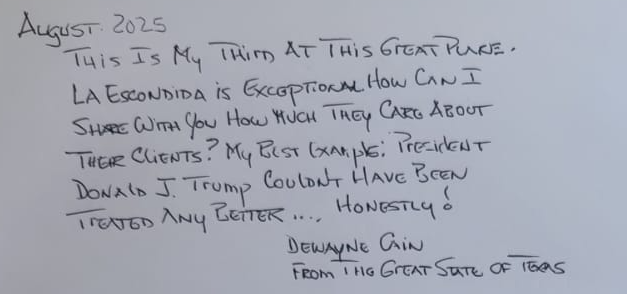 August. 2025
This Is My Third At This Great Place.
La Escondida is Exceptional How Can I
Share With You How Much They Care About
Their Clients? My Best Example: President
Donald J. Trump Couldnt Have Been
Treated Any Better .... Honestly!
Dewayne Cain
From The Great State of Texas